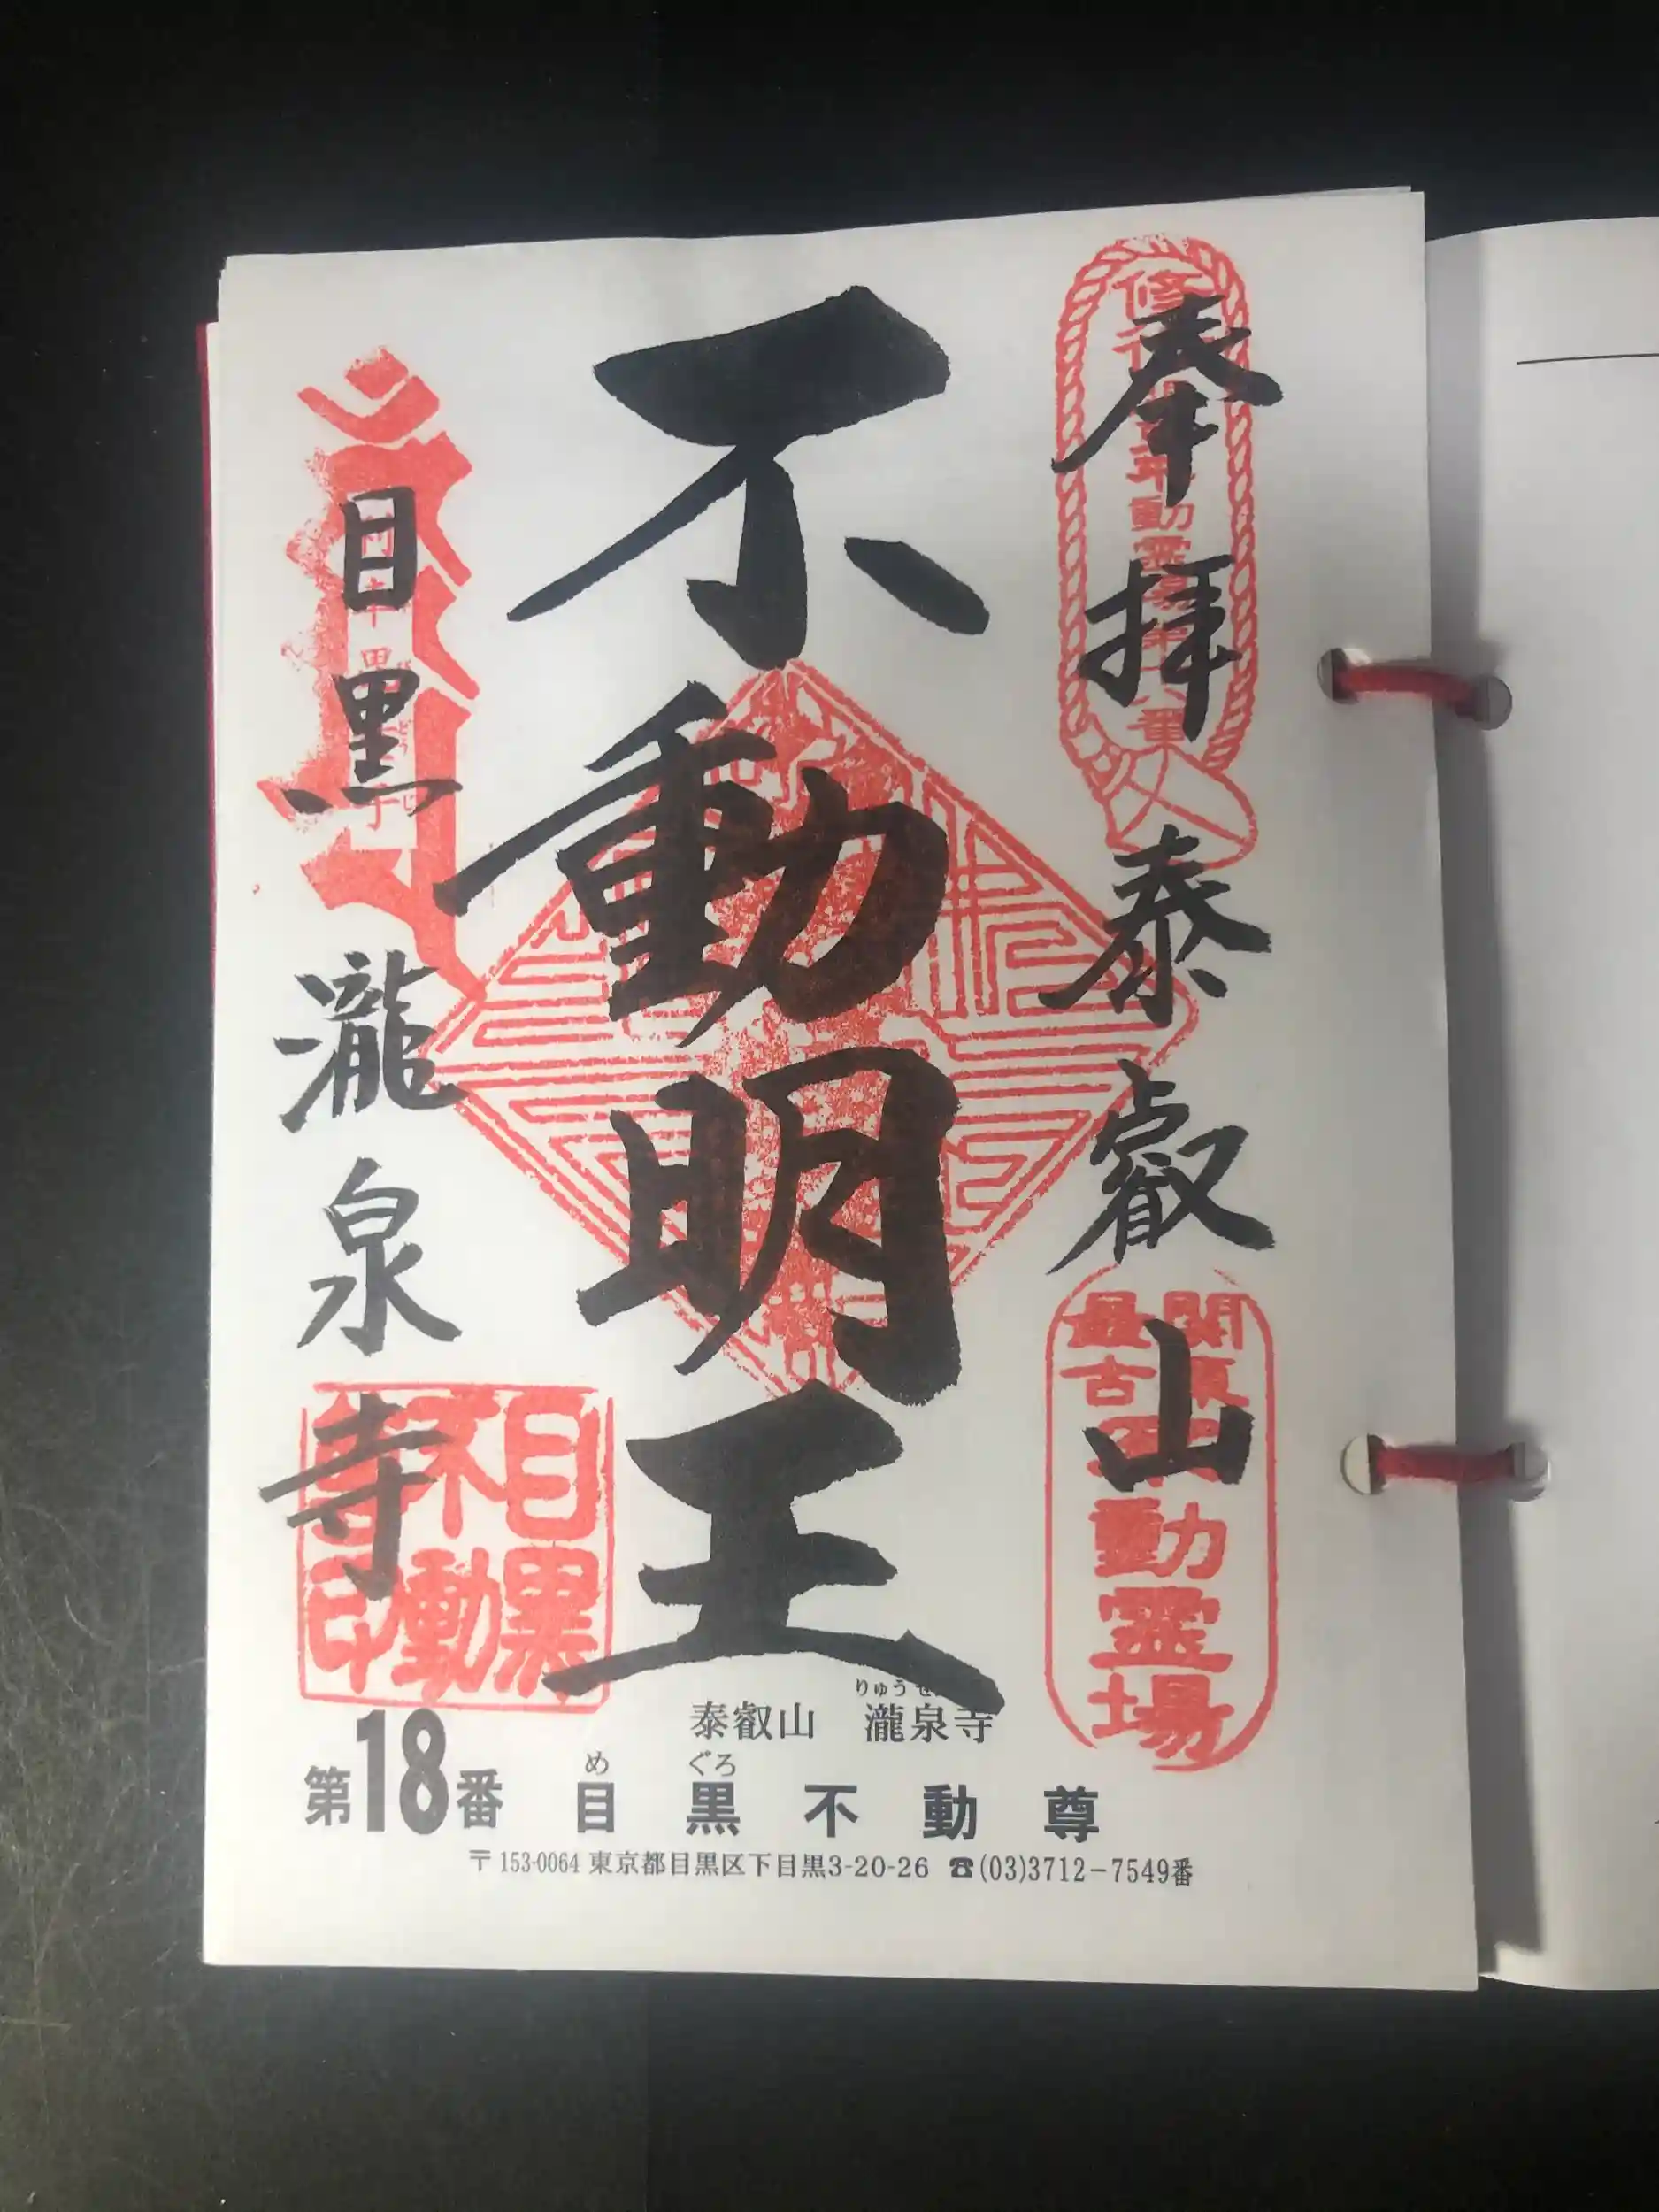 奉拝 泰叡山
不動明王
目黒 瀧泉寺
関東
最古
不動霊場
目黒
不動
寺印
りゅう
泰叡山 瀧泉寺
め ぐろ
第18番 目黒不動尊
〒153-0064 東京都目黒区下目黒3-20-26 ☎(03)3712-7549番